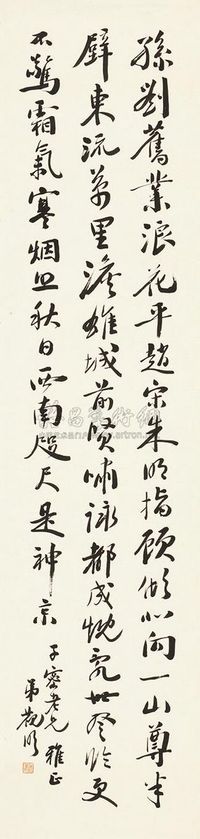 孫劉舊業浪花平趙宋朱明指顧傾心向一山尊半
壁東流萬里澹雄城前賢嘯詠都成忱亂世登臨更
不驚霜氣寒烟且秋日西南咫尺是神京
子密老兄雅正
弟觀明